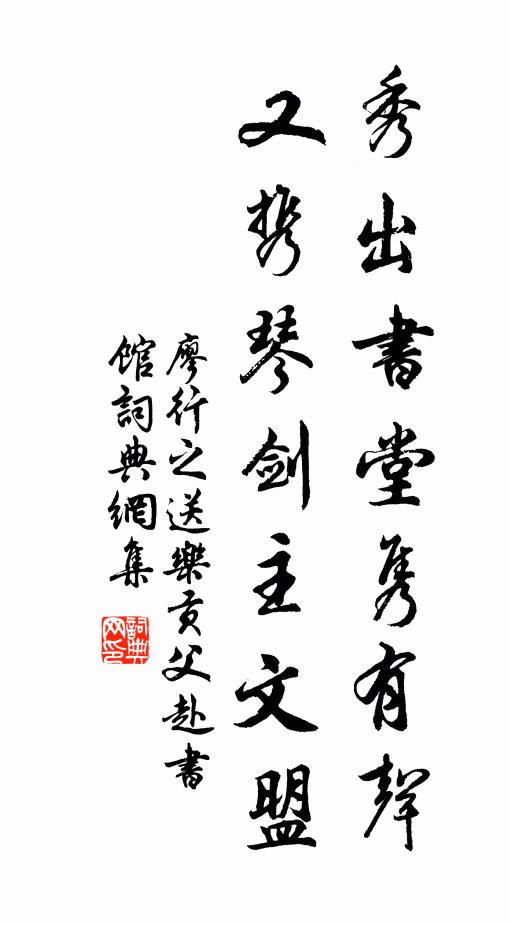 秀出書堂隽有聲
又携琴劍主文盟
廖行之送樂貢父赴書
館詞典網集
詞典网印